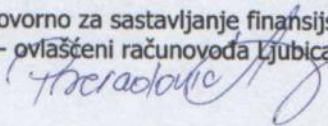 ovorno za sastavljanje finansijs
- ovlašćeni računovođa Ljubica